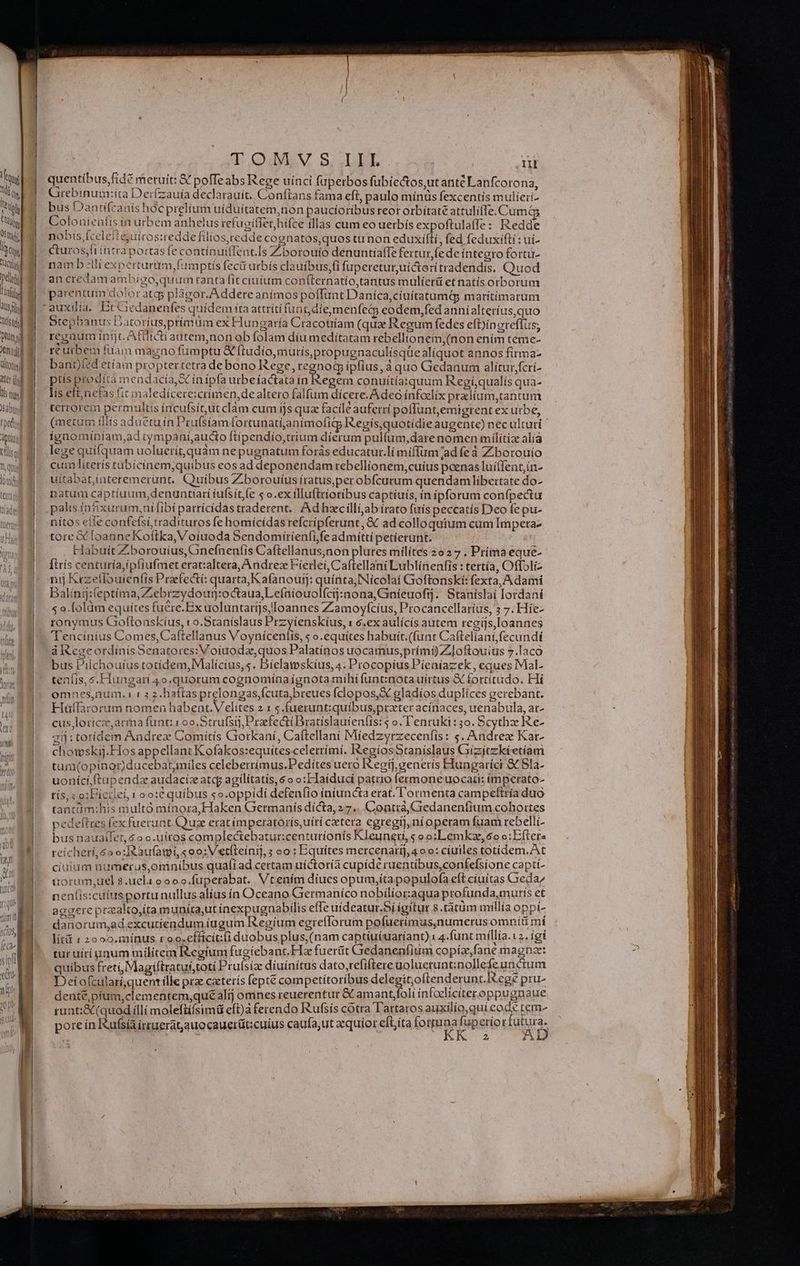 TOMVS III. iii
quentibus,fidē meruit: & posse abs Rege uinci superbos subiectos,ut antè Lanscorona,
Grebinum:ita Derszauia declarauit. Constans fama est, paulo minùs sexcentis mulieri-
bus Dantiscanis hôc prelium uiduitatem,non paucioribus reor orbitatē attulisse. Cumq;
Coloniensis in urbem anhelus refugisset,hisce illas cum eo uerbis expostulasse: Redde
nobis,scelestequiros:redde filios,redde cognatos,quos tu non eduxisti, sed seduxisti: ui-
cturos,si intra portas se continuissent.Is Zborouio denuntiasse fertur,se de integro fortu-
nam belli experturum,sumptis secū urbis clauibus,si superetur,uictori tradendis. Quod
an credam ambigo,quum tanta sit ciuium consternatio,tantus mulierū et natis orborum
parentum dolor atq; plāgor.Addere animos possunt Danica,ciuitatumq; maritimarum
auxilia. Et Gedanenses quidem ita attriti sunt,die,menseq; eodem,sed anni alterius,quo
Stephanus Batorius,primùm ex Hungaria Cracouiam (quæ Regum sedes est)ingressus,
regnum inijt.Afflicti autem,non ob solam diu meditatam rebellionem,(non enim teme-
rè urbem suam magno sumptu & studio,muris,propugnaculisque aliquot annos firma-
bant)sed etiam propter tetra de bono Rege, regnoq; ipsius, à quo Gedanum alitur,scri-
ptis prodita mendacia,& in ipsa urbe iactata in Regem conuitia:quum Regi,qualis qua-
lis est,nefas sit maledicere:crimen,de altero falsum dicere.Adeò infœlix prælium,tantum
terrorem permultis incusit,ut clàm cum ijs quæ facilè auferri possunt,emigrent ex urbe,
(metum illis aduētu in Prussiam fortunati,animosiq; Regis,quotidie augente) nec ulturi
ignominiam,ad tympani,aucto stipendio,trium dierum pulsum,dare nomen militiæ alia
lege quisquam uoluerit,quàm ne pugnatum foràs educatur.Ii missum ad se à Zborouio
cum literis tubicinem,quibus eos ad deponendam rebellionem,cuius pœnas luissent,in-
uitabat,interemerunt. Quibus Zborouius iratus,per obscurum quendam libertate do-
natum captiuum,denuntiari iusit,se 50.ex illustrioribus captiuis, in ipsorum conspectu
palis infixurum,ni sibi parricidas traderent. Ad hæc illi,ab irato suis peccatis Deo se pu-
nitos esse confessi,tradituros se homicidas rescripserunt, & ad colloquium cum Impera-
tore & Ioanne Kostka,Voiuoda Sendomiriensi,se admitti petierunt.
Habuit Zborouius,Gnesnensis Castellanus,non plures milites 2027. Prima eque-
stris centuria,ipsiusmet erat:altera,Andreæ Firlei,Castellani Lublinensis: tertia, Ossoli-
nij Krzesslouiensis Præfecti: quarta,Kasanouij: quinta,Nicolai Gostonskij: sexta,Adami
Balinij:septima,Zebrzydouij:octaua,Lesniouolscij:nona,Gnieuosij. Stanislai Iordani
50.solùm equites fuêre.Ex uoluntarijs,Ioannes Zamoyscius, Procancellarius, 37. Hie-
ronymus Gostonskius, 10.Stanislaus Przyienskius, 16,ex aulicis autem regijs,Ioannes
Tencinius Comes,Castellanus Voynicensis, 50.equites habuit.(sunt Castellani,secundi
à Rege ordinis Senatores:Voiuodæ,quos Palatinos uocamus,primi)Zlostouius 7.Iaco
bus Pilchouius totidem,Malicius,5. Bielawskius,4. Procopius Pieniazek, eques Mal-
tensis,6.Hungari 40.quorum cognomina ignota mihi sunt:nota uirtus & fortitudo. Hi
omnes,num.1132.hastas prelongas,scuta,breues sclopos,& gladios duplices gerebant.
Hussarorum nomen habent.Velites 215.fuerunt:quibus,præter acinaces, uenabula, ar-
cus,loricæ,arma sunt:100.Strusij,Præfecti Bratislauiensis: 50.Tenruki:30. Scythæ Re-
gij: totidem Andreæ Comitis Gorkani, Castellani Miedzyrzecensis: 5. Andreæ Kar-
chowskij.Hos appellant Kosakos:equites celerrimi. Regios Stanislaus Gizitzki etiam
tum(opinor)ducebat,miles celeberrimus.Pedites uerò Regij,generis Hungarici & Sla-
uonici,stupendæ audaciæ atq; agilitatis,600:Haiduci patrio sermone uocati: imperato-
ris,50:Fierlei,100:è quibus 50.oppidi defensio iniuncta erat.Tormenta campestria duo
tantùm:his multò minora,Haken Germanis dicta,27. Contrà,Gedanensium cohortes
pedestres sex fuerunt.Quæ erat imperatoris,uiri cætera egregij, ni operam suam rebelli-
bus nauasset,600.uiros complectebatur:centurionis Kleuneri, 500:Lemkæ,600:Ester-
reicheri,600:Raufawi,500:Vetsteinij,300: Equites mercenarij,400: ciuiles totidem.At
ciuium numerus,omnibus quasi ad certam uictoriā cupidè ruentibus,confessione capti-
uorum,uel 8.uel 10000.superabat. Vt enim diues opum,ita populosa est ciuitas Geda-
nensis:cuius portu nullus alius in Oceano Germanico nobilior:aqua profunda,muris et
aggere præalto,ita munita,ut inexpugnabilis esse uideatur.Si igitur 8.tātùm millia oppi-
danorum,ad excutiendum iugum Regium egressorum posuerimus,numerus omniū mi
litū 12000.minus 100.efficit:si duobus plus,(nam captiui uariant) 14.sunt millia.12. igi
tur uiri unum militem Regium fugiebant.Hæ fuerūt Gedanensium copiæ,sanè magnæ:
quibus freti,Magistratui,toti Prussiæ diuinitus dato,resistere uoluerunt:nolle se unctum
Dei osculari,quem ille præ cæteris septē competitoribus delegit,ostenderunt.Rege pru-
dente,pium,clementem,quē alij omnes reuerentur & amant,soli infœliciter oppugnaue
runt:&(quod illi molestissimū est)à ferendo Russis cōtra Tartaros auxilio,qui eodē tem-
pore in Russiā irruerāt,auocauerūt:cuius causa,ut æquior est,ita fortuna superior futura.
KK 2 AD